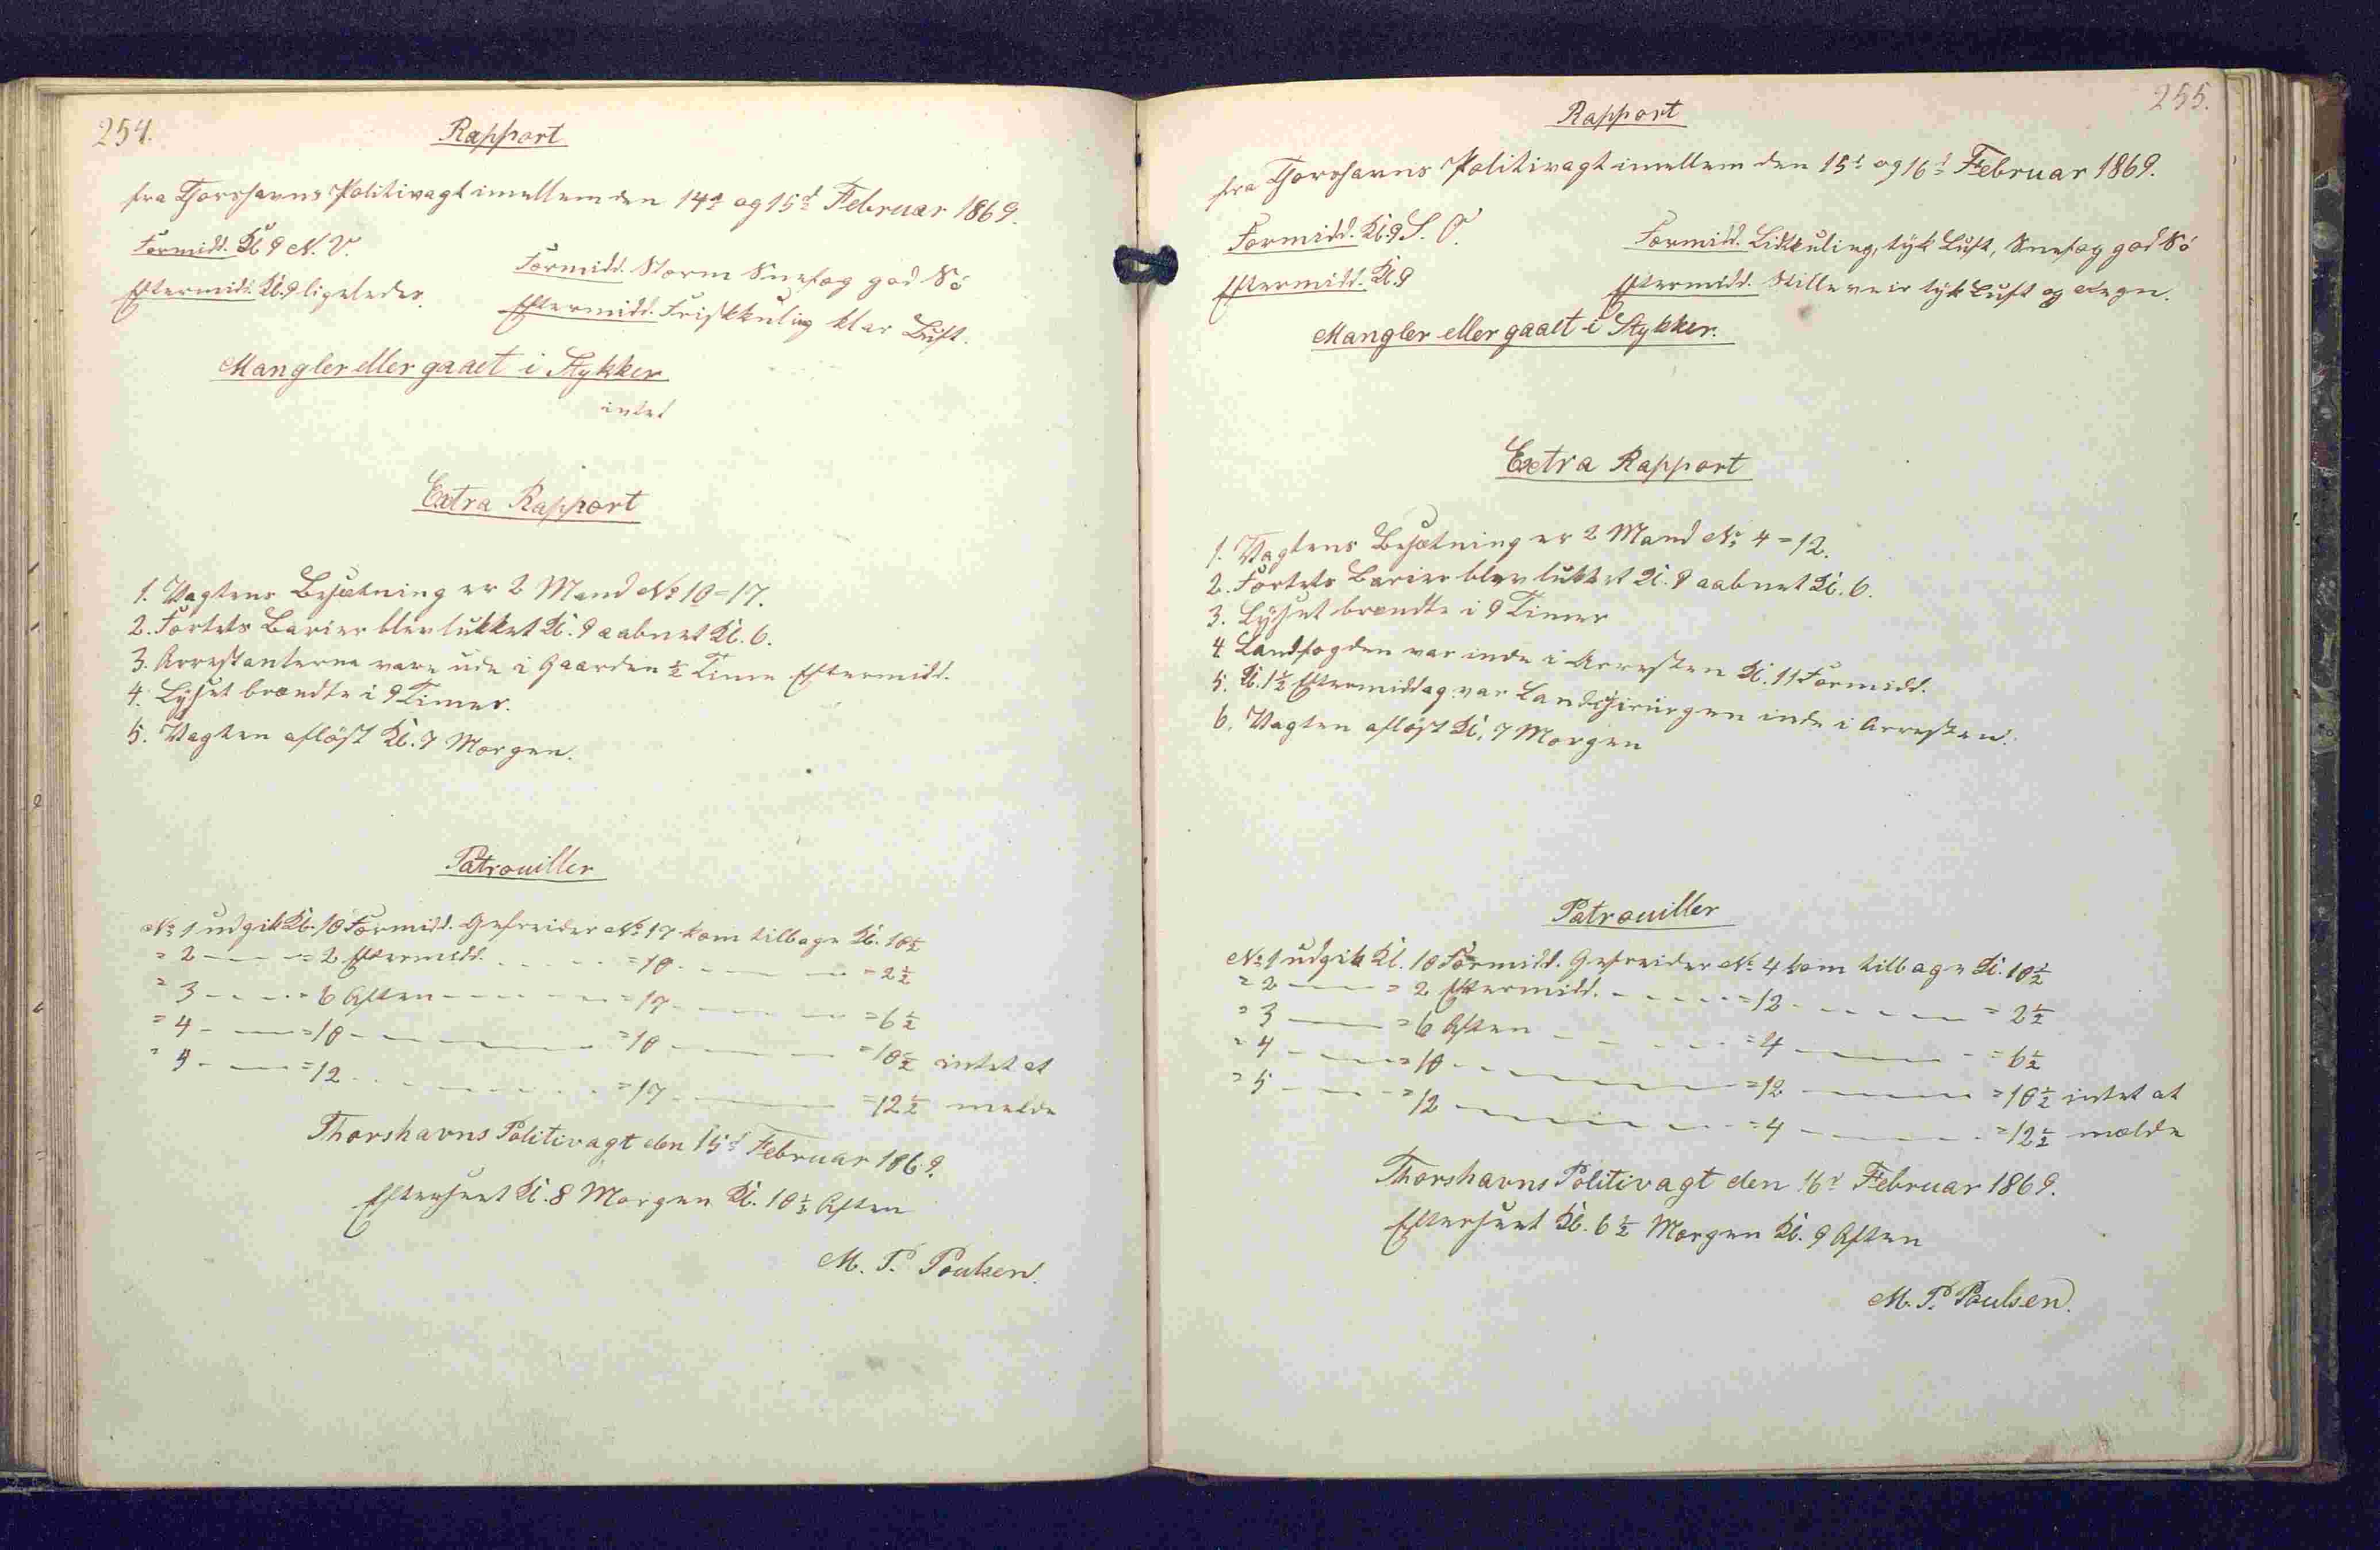 254.
Rapport
fra Thorshavns Politivagt imellem den 14d og 15d Februar 1869.
Formidd. Kl. 9 N. V.
Eftermidd. Kl. 9 ligeledes.
Formidd. Storm Snefog god Sö
Eftermidd. Friskkuling klar Luft.
Mangler eller gaaet i Stykker
intet
Extra Rapport
1. Vagtens Besætning er 2 Mand No 10 = 17.
2. Fortets Barier blev lukket Kl. 9 aabnet Kl. 6.
3. Arrestanterne vare ude i Gaarden ½ Time Eftermidd.
4. Lyset brændte i 9 Timer.
5. Vagten aflöst Kl. 7 Morgen.
Patrouiller
No 1 udgik Kl. 10 Formidd. Gefreider No 17 kom tilbage Kl. 10½
" 2 — — = 2 Eftermidd. - - - = 10 - — — = 2½
" 3 - - - = 6 Aften - - - - = 17 - — — = 6½
= 4 - — = 10 - - - - - = 10 — — = 10½ intet at
" 5 - — = 12 - - - - - = 17 - — = 12½ melde
Thorshavns Politivagt den 15d Februar 1869.
Efterseet Kl. 8 Morgen Kl. 10½ Aften
M. P. Poulsen.
255.
Rapport
fra Thorshavns Politivagt imellem den 15d og 16d Februar 1869.
Formidd. Kl. 9 S. O.
Eftermidd. Kl. 9
Formidd. Lidtkuling, tyk Luft, Snefog god Sö
Eftermidd. Stilleveir tyk Luft og Regn.
Mangler eller gaaet i Stykker.
Extra Rapport
1. Vagtens Besætning er 2 Mand No 4 = 12.
2. Fortets Barier blev lukket Kl. 9 aabnet Kl. 6.
3. Lyset brændte i 9 Timer
4 Landfogden var inde i Arresten Kl. 11 Formidd.
5. Kl. 1½ Eftermiddag var Landchirurgen inde i Arresten.
6. Vagten aflöst Kl. 7 Morgen
Patrouiller
No 1 udgik Kl. 10 Formidd. Gefreider No 4 kom tilbage Kl. 10½
= 2 — — = 2 Eftermidd. - - - = 12 - - - — = 2½
= 3 — — = 6 Aften - - - - = 4 — — - = 6½
" 4 - — = 10 - - - - — = 12 — — = 10½ intet at
= 5 — - - = 12 — - - - - = 4 — - - = 12½ melde
Thorshavns Politivagt den 16d Februar 1869.
Efterseet Kl. 6½ Morgen Kl. 9 Aften
M. P. Poulsen.